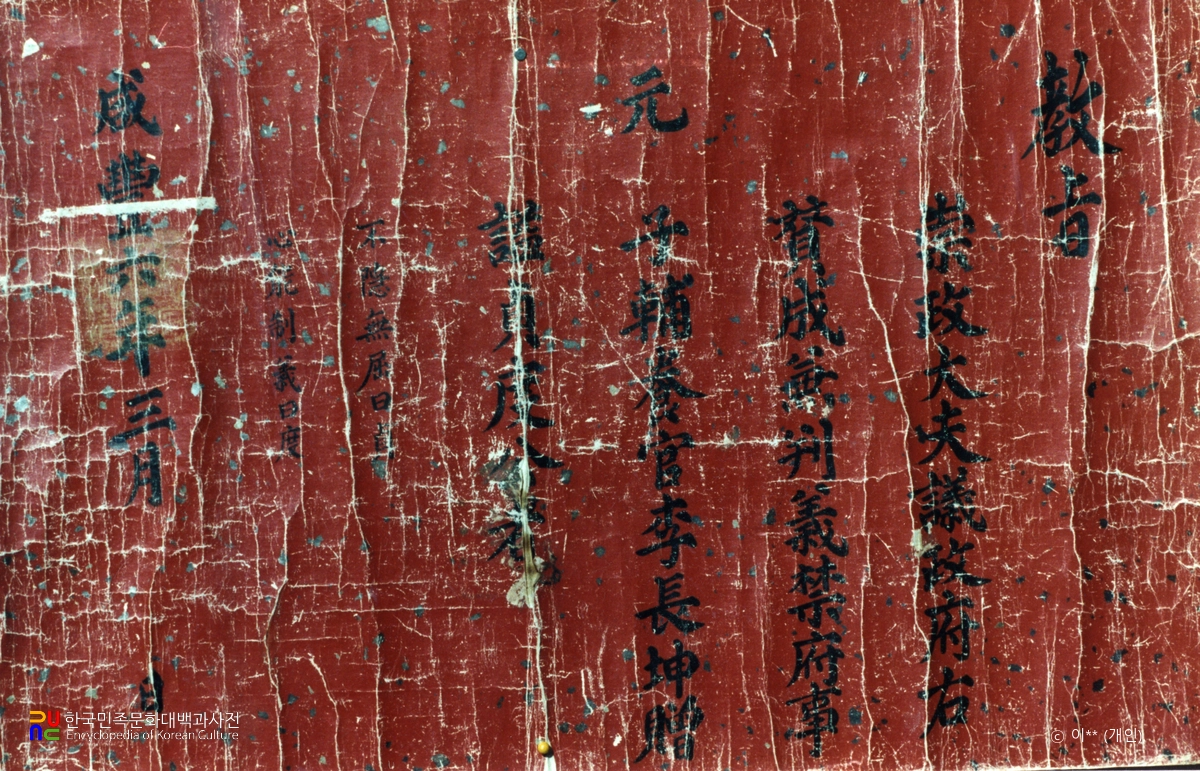 敎旨
崇政大夫議政府右
贊成兼判義禁府事
元子輔養官李長坤贈
諡貞度公者
不隱無屈曰貞
心能制義曰度
咸豊六年三月 日
한국민족문화대백과사전
Encyclopedia of Korean Culture
© 이** (개인)